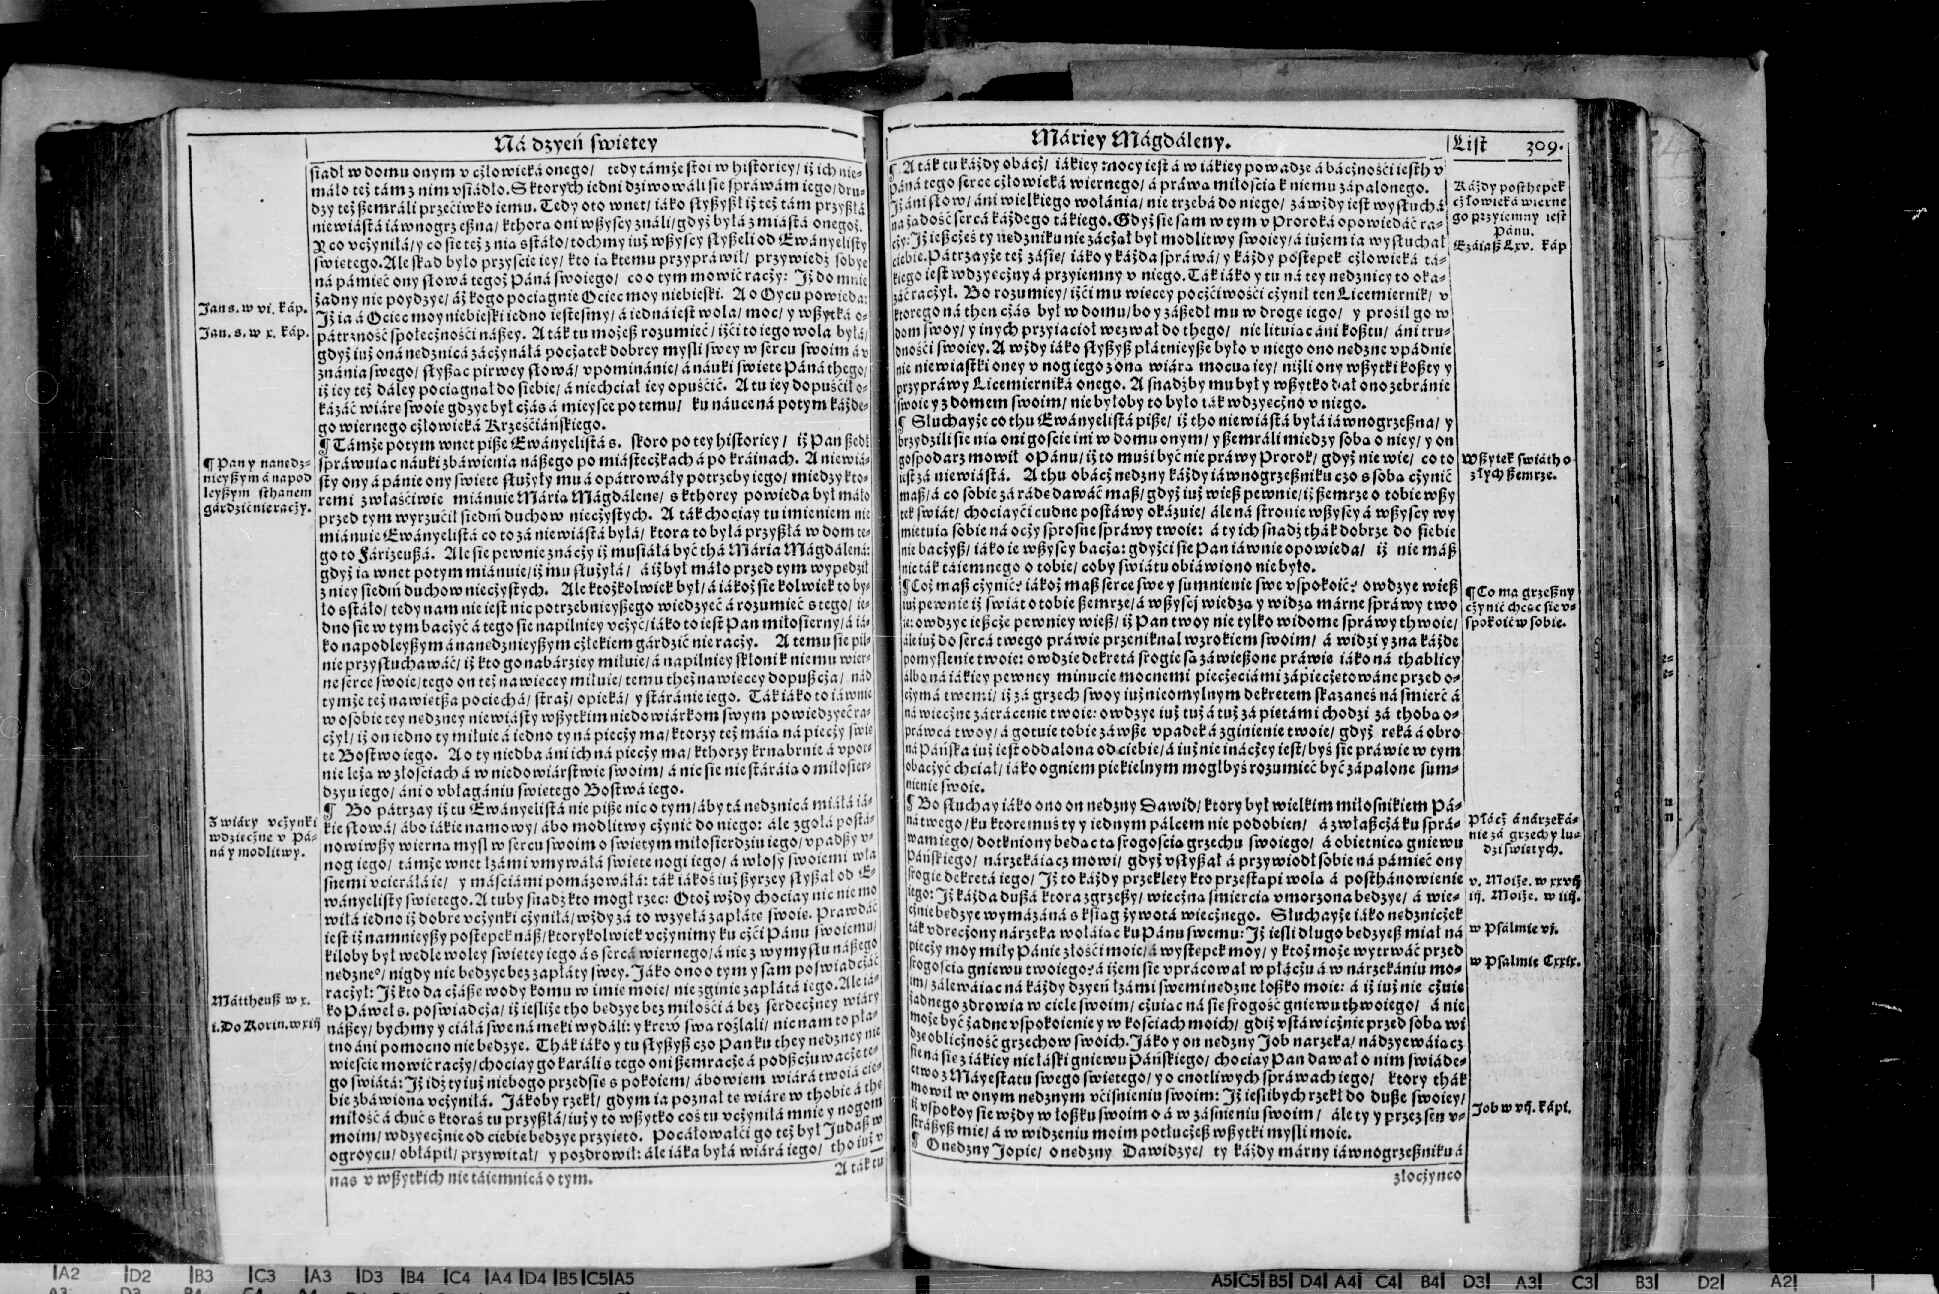 Ná dzyeń swietey
siadł w domu onym v człowieká onego/ tedy támże stoi w historiey/ iż ich nie-
máło też tám z nim vsiádło. S ktorych iedni dziwowáli sie spráwam iego/ dru-
dzy też szemráli przećiwko iemu. Tedy oto wnet/ iáko słyszyszł iż też tám przyszłá
niewiástá iáwnogrzeszna/ kthora oni wszyscy ználi/ gdyż byłá z miástá onegoż.
Y co vczyniłá/ y co sie też z nia sstáło/ tochmy iuż wszyscy słyszeli od Ewányelisty
swietego. Ale skad było przyście iey/ kto ia ktemu przypráwił/ przywiedź sobye
ná pámieć ony słowá tegoż Páná swoiego/ co o tym mowić raczy: Iż do mnie
żadny nie poydzye/ áż kogo pociagnie Ociec moy niebieski. A o Oycu powieda:
Iż ia á Ociec moy niebieski iedno iestesmy/ á iedná iest wola/ moc/ y wszytká o-
pátrzność społeczności nászey. A ták tu możesz rozumieć/ iżći to iego wola byłá/
gdyż iuż oná nedznicá záczynáłá początek dobrey mysli swey w sercu swoim á v
znánia swego/ słysząc pirwey słowá/ vpominánie/ á náuki swiete Páná thego/
iż iey też dáley pociagnął do siebie/ á niechciał iey opuścić. A tu iey dopuścił o-
kázáć wiáre swoie gdzye był czás á mieysce po temu/ ku náuce ná potym káżde-
go wiernego człowieká Krześciáńskiego.
¶ Támże potym wnet pisze Ewányelistá s. skoro po tey historiey/ iż Pan szedł
spráwuiac náuki zbáwienia nászego po miásteczkách á po kráinach. A niewiá-
sty ony á pánie ony swiete służyły mu á opátrowáły potrzeby iego/ miedzy kto-
remi zwłaściwie miánuie Mária Mágdálene/ s kthorey powieda był máło
przed tym wyrzucił siedm duchow nieczystych. A ták chociay tu imieniem nie
miánuie Ewányelistá co to zá niewiástá byłá/ ktora to byłá przyszłá w dom te-
go to Fárizeuszá. Ale sie pewnie znáczy iż musiáłá być thá Mária Mágdálená:
gdyż ia wnet potym miánuie/ iż mu służyłá/ á iż był máło przed tym wypedził
z niey siedm duchow nieczystych. Ale ktożkolwiek był/ á iákoż sie kolwiek to by-
ło sstáło/ tedy nam nie iest nic potrzebnieyszego wiedzyeć á rozumieć s tego/ ie-
dno sie w tym baczyć á tego sie napilniey vczyć/ iáko to iest Pan miłosierny/ á iá-
ko napodleyszym á nanedznieyszym człekiem gárdzić nie raczy. A temu sie pil-
nie przysłucháwáć/ iż kto go nabárziey miłuie/ á napilniey skłoni k niemu wier-
ne serce swoie/ tego on też nawiecey miłuie/ temu też nawiecey dopuszcza/ nád
tymże też nawietsza pociechá/ straż/ opieká/ y stáránie iego. Ták iáko to iáwnie
w osobie tey nedzney niewiásty wszytkim niedowiárkom swym powiedzyeć ra-
czył/ iż on iedno ty miłuie á iedno ty ná pieczy ma/ ktorzy też máia ná pieczy swie
te Bostwo iego. A o ty niedba áni ich ná pieczy ma/ kthorzy krnabrnie á vpor-
nie leża w złościach á w niedowiárstwie swoim/ á nic sie nie stáráia o miłosier-
dzyu iego/ áni o vbłagániu swietego Bostwá iego.
¶ Bo pátrzay iż tu Ewányelistá nie pisze nic o tym/ áby tá nedznicá miáłá iá-
kie słowá/ ábo iákie namowy/ ábo modlitwy czynić do niego: ále zgołá postá-
nowiwszy wierna mysl w sercu swoim o swietym miłosierdziu iego/ vpadszy v
nog iego/ támże wnet łzámi vmywáłá swiete nogi iego/ á włosy swoiemi wła
snemi vcieráłá ie/ y máściámi pomázowáłá: ták iákoś iuż szyrzey słyszał od E-
wányelisty swietego. A tuby snadź kto mogł rzec: Otoż wżdy chociay nic nie mo
wiłá iedno iż dobre vczynki czyniłá/ wżdy zá to wzyełá zapłáte swoie. Prawdáć
iest iż namnieyszy postepek nász/ ktorykolwiek vczynimy ku czci Pánu swoiemu/
kiloby był wedle woley swietey iego á s sercá wiernego/ á nie z wymysłu nászego
nedzneº/ nigdy nie bedzye bez zapłáty swey. Iáko ono o tym y sam poswiádczáć
raczył: Iż kto da czásze wody komu w imie moie/ nie zginie zapłátá iego. Ale iá-
ko Páweł s. poswiadcza/ iż iesliże tho bedzye bez miłości á bez serdeczney wiáry
nászey/ bychmy y ciáłá swe ná meki wydáli: y krew swa rozlali/ nic nam to płá-
tno áni pomocno nie bedzye. Thák iáko y tu słyszysz czo Pan ku they nedzney nie
wieście mowić raczy/ chociay go karáli s tego oni szemracze á podszczuwacze te-
go swiátá: Iż idź ty iuż niebogo przedsie s pokoiem/ ábowiem wiárá twoiá cie-
bie zbáwiona vczyniłá. Iákoby rzekł/ gdym ia poznał te wiáre w thobie á the
miłość á chuć s ktoraś tu przyszłá/ iuż y to wszytko coś tu vczyniłá mnie y nogom
moim/ wdzyecznie od ciebie bedzye przyieto. Pocáłowałci go też był Iudasz w
ogroycu/ obłapił/ przywitał/ y pozdrowił: ále iáka byłá wiárá iego/ tho iuż v
nas v wszytkich nie táiemnicá o tym.
A ták tu
Jan s. w vi. káp.
Jan. s. w x. káp.
¶ Pan y nanedz-
nieyszym á napod
leyszym sthanem
gárdzić nie raczy.
Z wiáry vczynki
wdzieczne v Pá-
ná y modlitwy.
Máttheusz w x.
i. Do Korin. w xiij
Máriey Mágdáleny.
List 309.
¶ A ták tu káżdy obácz/ iákiey mocy iest á w iákiey powadze á báczności iesth v
Páná tego serce człowieká wiernego/ á práwa miłościa k niemu zápalonego.
Iż áni słow/ áni wielkiego wołánia/ nie trzebá do niego/ záwżdy iest wysłucha
ná żadość sercá káżdego tákiego. Gdyż sie sam w tym v Proroká opowiedáć ra-
czy: Iż ieszcześ ty nedzniku nie záczał był modlitwy swoiey/ á iużem ia wysłuchał
ciebie. Pátrzayże też zásie/ iáko y káżda spráwá/ y káżdy postepek człowieká tá-
kiego iest wdzyeczny á przyiemny v niego. Ták iáko y tu ná tey nedznicy to oka-
záć raczył. Bo rozumiey/ iżći mu wiecey poczciwości czynił ten Licemiernik/ v
ktorego ná then czás był w domu/ bo y zászedł mu w droge iego/ y prosił go w
dom swoy/ y inych przyiaciół wezwał do thego/ nie lituiac áni kosztu/ áni tru-
dności swoiey. A wżdy iáko słyszysz płátnieysze było v niego ono nedzne vpádnie
nie niewiástki oney v nog iego z ona wiára mocua iey/ niżli ony wszytki koszty y
przypráwy Licemierniká onego. A snadźby mu był y wszytko dał ono zebránie
swoie y z domem swoim/ nie byłoby to było ták wdzyeczno v niego.
¶ Słuchayże co thu Ewányelistá pisze/ iż tho niewiástá byłá iáwnogrzeszna/ y
brzydzili sie nia oni goscie ini w domu onym/ y szemráli miedzy soba o niey/ y on
gospodarz mowił o Pánu/ iż to musi być nie práwy Prorok/ gdyż nie wie/ co to
iest zá niewiástá. A thu obácz nedzny káżdy iáwnogrzeszniku czo s soba czynić
masz/ á co sobie zá ráde dawáć masz/ gdyż iuż wiesz pewnie/ iż szemrze o tobie wszy
tek swiát/ chociayći cudne postáwy okázuie/ ále ná stronie wszyscy á wszyscy wy
mietuia sobie ná oczy sprosne spráwy twoie: á ty ich snadź thák dobrze do siebie
nie baczysz/ iáko ie wszyscy bacza: gdyżći sie Pan iáwnie opowieda/ iż nie mász
nic ták táiemnego o tobie/ coby swiátu obiáwiono nie było.
¶ Coż masz czynić? iákoż masz serce swe y sumnienie swe vspokoić? owdzye wiesz
iuż pewnie iż swiát o tobie szemrze/ á wszyscy wiedza y widza márne spráwy two
ie: owdzye ieszcze pewniey wiesz/ iż Pan twoy nie tylko widome spráwy thwoie/
ále iuż do sercá twego práwie przeniknał wzrokiem swoim/ á widzi y zna káżde
pomyslenie twoie: owdzie dekretá srogie sa záwieszone práwie iáko ná thablicy
álbo ná iákiey pewney minucie mocnemi pieczeciámi zápieczetowáne przed o-
czymá twemi/ iż zá grzech swoy iuż nieomylnym dekretem skazaneś ná śmierć á
ná wieczne zátrácenie twoie: owdzye iuż tuż á tuż zá pietámi chodzi zá thoba o-
práwcá twoy/ á gotuie tobie záwsze vpadek á zginienie twoie/ gdyż reká á obro
ná Páńska iuż iest oddalona od ciebie/ á iuż nie ináczey iest/ byś sie práwie w tym
obaczyć chciał/ iáko ogniem piekielnym mogłbyś rozumieć być zápalone sum-
nienie swoie.
¶ Bo słuchay iáko ono on nedzny Dawid/ ktory był wielkim miłosnikiem Pá-
ná twego/ ku ktoremuś ty y iednym pálcem nie podobien/ á zwłaszczá ku sprá-
wam iego/ dotkniony bedac ta srogościa grzechu swoiego/ á obietnicá gniewu
Páńskiego/ nárzekáiacz mowi/ gdyż vsłyszał á przywiodł sobie ná pámieć ony
srogie dekretá iego/ Iż to káżdy przeklety kto przestapi wola á posthánowienie
iego: Iż káżda duszá ktora zgrzeszy/ wieczna śmiercia vmorzona bedzye/ á wie-
cznie bedzye wymázáná s ksiag żywotá wiecznego. Słuchayże iáko nedzniczek
ták vdreczony nárzeka wołáiac ku Pánu swemu: Iż iesli długo bedzyesz miał ná
pieczy moy miły Pánie złości moie/ á wystepek moy/ y ktoż może wytrwáć przed
srogościa gniewu twoiego? á iżem sie vprácował w płáczu á w nárzekániu mo-
im/ zálewáiac ná káżdy dzyeń łzámi swemi nedzne łoszko moie: á iż iuż nie czuie
żadnego zdrowia w ciele swoim/ czuiac ná sie srogość gniewu thwoiego/ á nie
może być żadne vspokoienie y w kościach moich/ gdiż vstáwicznie przed soba wi
dze obliczność grzechow swoich. Iáko y on nedzny Job nárzeka/ nádzyewáiacz
sie ná sie z iákiey niełáski gniewu Páńskiego/ chociay Pan dawał o nim swiáde-
ctwo z Máyestatu swego swietego/ y o cnotliwych spráwach iego/ ktory thák
mowił w onym nedznym vcisnieniu swoim: Iż ieslibych rzekł do dusze swoiey/
iż vspokoy sie wżdy w łoszku swoim o á w zásnieniu swoim/ ále ty y przez sen v-
strászysz mie/ á w widzeniu moim potłuczesz wszytki mysli moie.
¶ O nedzny Jopie/ o nedzny Dawidzye/ ty káżdy márny iáwnogrzeszniku á
złoczynco
Káżdy posthepek
człowieká wierne
go przyiemny iest
Pánu.
Ezáiasz Lxv. káp
Wszytek swiáth o
złych szemrze.
¶ Co ma grzeszny
czynić chcąc sie v-
spokoić w sobie.
Płácz á nárzeká-
nie zá grzechy lu-
dzi swietych.
v. Moiże. w xxvij
iij. Moiże. w iiij.
w Psálmie vj.
w Psálmie Cxxix.
Job w vij. kápi.
A2 D2 B3 C3 A3 D3 B4 C4 A4 D4 B5 C5 A5
A5 C5 B5 D4 A4 C4 B4 D3 A3 C3 B3 D2 A2